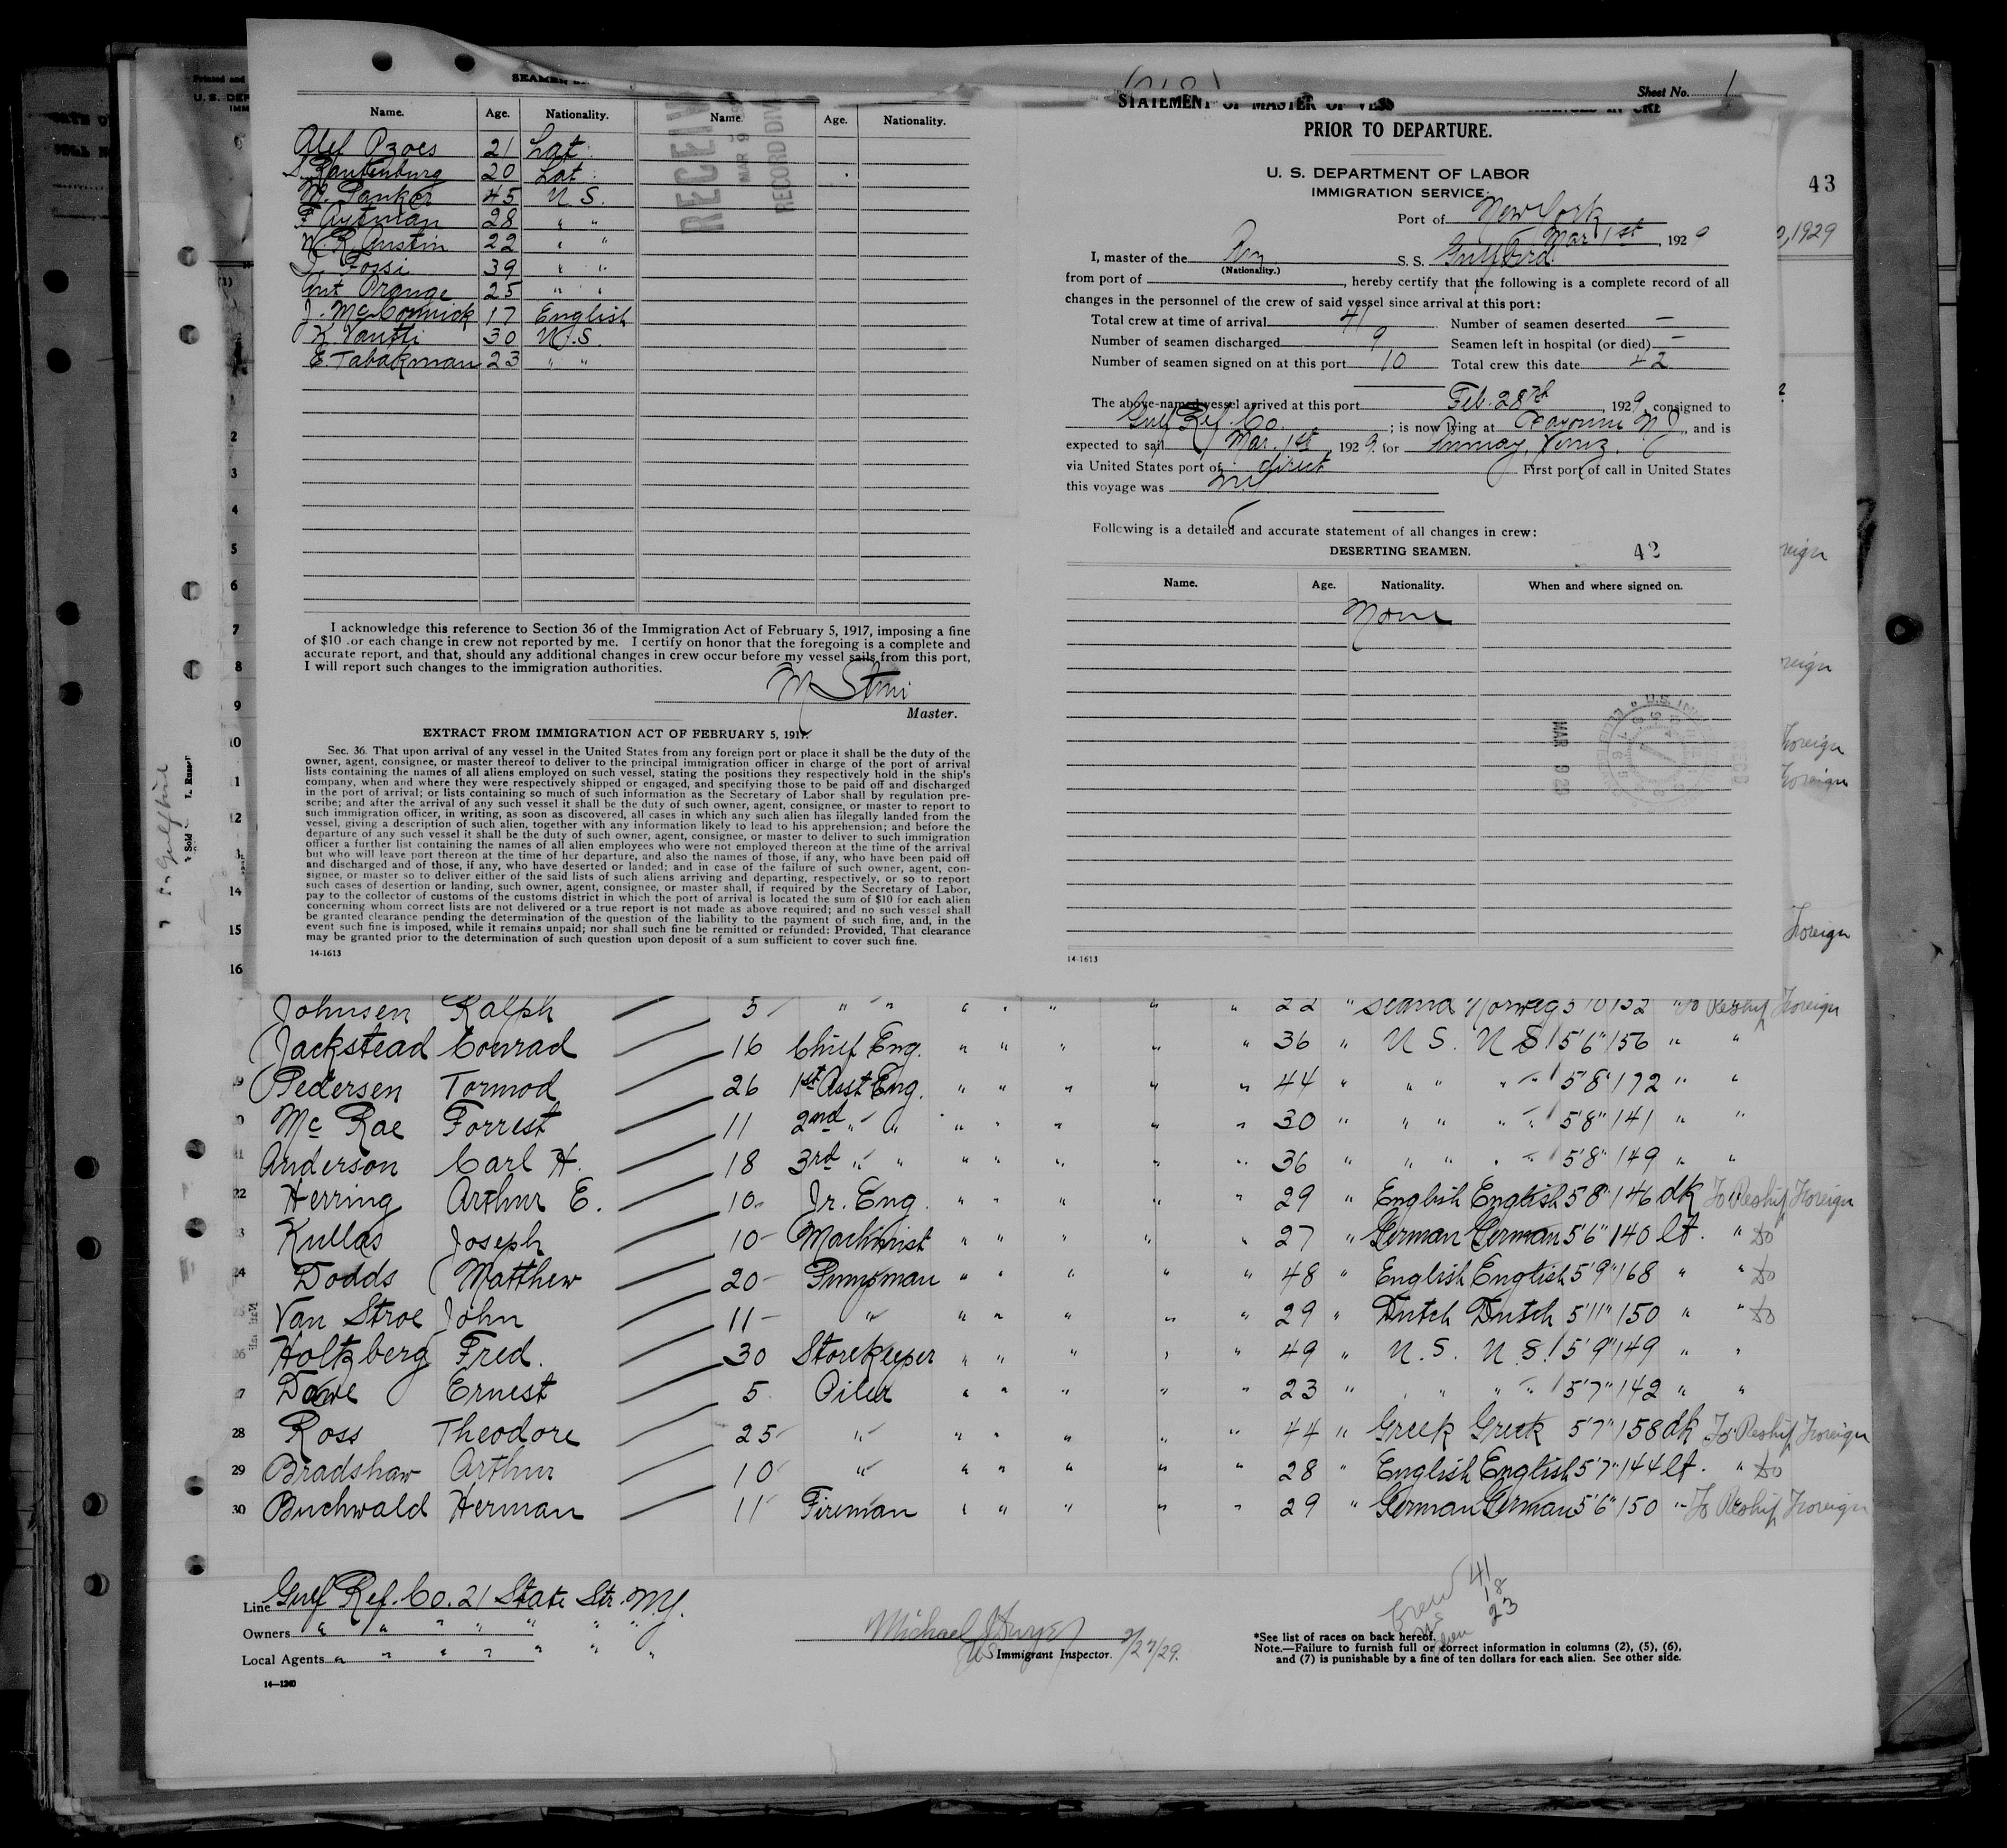 SEAMEN
Name. Age. Nationality. Name. Age. Nationality.
Alef Ozoes 21 Lat.
S. Rautenburg 20 Lat.
M. Pankor 45 U S.
F. Aysman 28 " "
W. R. Austin 22 " "
J. Fossi 39 " "
Ant Orange 25 " "
J. McCormick 17 English
K. Vantti 30 U.S.
E. Tabakman 23 " "
RECEIV
MAR 9
RECORD DIV
I acknowledge this reference to Section 36 of the Immigration Act of February 5, 1917, imposing a fine
of $10 .or each change in crew not reported by me. I certify on honor that the foregoing is a complete and
accurate report, and that, should any additional changes in crew occur before my vessel sails from this port,
I will report such changes to the immigration authorities.
Master.
EXTRACT FROM IMMIGRATION ACT OF FEBRUARY 5, 1917.
Sec. 36. That upon arrival of any vessel in the United States from any foreign port or place it shall be the duty of the
owner, agent, consignee, or master thereof to deliver to the principal immigration officer in charge of the port of arrival
lists containing the names of all aliens employed on such vessel, stating the positions they respectively hold in the ship's
company, when and where they were respectively shipped or engaged, and specifying those to be paid off and discharged
in the port of arrival; or lists containing so much of such information as the Secretary of Labor shall by regulation pre-
scribe; and after the arrival of any such vessel it shall be the duty of such owner, agent, consignee, or master to report to
such immigration officer, in writing, as soon as discovered, all cases in which any such alien has illegally landed from the
vessel, giving a description of such alien, together with any information likely to lead to his apprehension; and before the
departure of any such vessel it shall be the duty of such owner, agent, consignee, or master to deliver to such immigration
officer a further list containing the names of all alien employees who were not employed thereon at the time of the arrival
but who will leave port thereon at the time of her departure, and also the names of those, if any, who have been paid off
and discharged and of those, if any, who have deserted or landed; and in case of the failure of such owner, agent, con-
signee, or master so to deliver either of the said lists of such aliens arriving and departing, respectively, or so to report
such cases of desertion or landing, such owner, agent, consignee, or master shall, if required by the Secretary of Labor,
pay to the collector of customs of the customs district in which the port of arrival is located the sum of $10 for each alien
concerning whom correct lists are not delivered or a true report is not made as above required; and no such vessel shall
be granted clearance pending the determination of the question of the liability to the payment of such fine, and, in the
event such fine is imposed, while it remains unpaid; nor shall such fine be remitted or refunded: Provided, That clearance
may be granted prior to the determination of such question upon deposit of a sum sufficient to cover such fine.
14-1613
Sheet No. 1
STATEMENT OF MASTER OF VESS
PRIOR TO DEPARTURE.
U. S. DEPARTMENT OF LABOR
IMMIGRATION SERVICE
Port of New York
Mar 1st, 1929
I, master of the S. S. Gulfbird
(Nationality.)
from port of , hereby certify that the following is a complete record of all
changes in the personnel of the crew of said vessel since arrival at this port:
Total crew at time of arrival 41 Number of seamen deserted —
Number of seamen discharged 9 Seamen left in hospital (or died) —
Number of seamen signed on at this port 10 Total crew this date 42
The above-named vessel arrived at this port Feb. 28th, 1929, consigned to
Gulf Ref. Co. ; is now lying at Bayonne N J, and is
expected to sail Mar. 1st, 1929. for
via United States port of direct First port of call in United States
this voyage was
Following is a detailed and accurate statement of all changes in crew:
DESERTING SEAMEN.
42
Name. Age. Nationality. When and where signed on.
None
MAR 9 29
14-1613
43
, 1929
Foreign
Foreign
Foreign
Johnsen Ralph 5 " " 22 " Scand Norweg 5'10 152 " To Reship Foreign
Jackstead Conrad 16 Chief Eng. " " " " " 36 " U S. U S 5'6" 156 " "
Pedersen Tormod 26 1st Asst Eng. " " " " " 44 " " " " " 5'8" 172 " "
Mc Rae Forrest 11 2nd " " " " " " " 30 " " " " " 5'8" 141 " "
Anderson Carl H. 18 3rd " " " " " " " 36 " " " " " 5'8" 149 " "
22 Herring Arthur E. 10 Jr. Eng. " " " " " 29 " English English 5'8" 146 dk To Reship Foreign
Kullas Joseph 10 Machinist " " " " " 27 " German German 5'6" 140 lt. " do
24 Dodds Matthew 20 Pumpman " " " " " 48 " English English 5'9" 168 " " do
Van Stroe John 11 " " " " " " 29 " Dutch Dutch 5'11" 150 " " do
26 Holtzberg Fred. 30 Storekeeper " " " " " 49 " U.S. U.S. 5'9" 149 " "
Dowe Ernest 5 Oiler " " " " " 23 " " " " " 5'7" 142 " "
28 Ross Theodore 25 " " " " " " 44 " Greek Greek 5'7" 158 dk To Reship Foreign
29 Bradshaw Arthur 10 " " " " " " 28 " English English 5'7" 144 lt. " do
30 Buchwald Herman 11 Fireman " " " " " 29 " German German 5'6" 150 " To Reship Foreign
Line Gulf Ref. Co. 21 State Str. N.Y.
Owners " " " " " " "
Local Agents " " " " " " "
14—1240
Michael J Dwyer
US Immigrant Inspector. 2/27/29.
Crew 41
US 18
Alien 23
*See list of races on back hereof.
Note.—Failure to furnish full or correct information in columns (2), (5), (6),
and (7) is punishable by a fine of ten dollars for each alien. See other side.